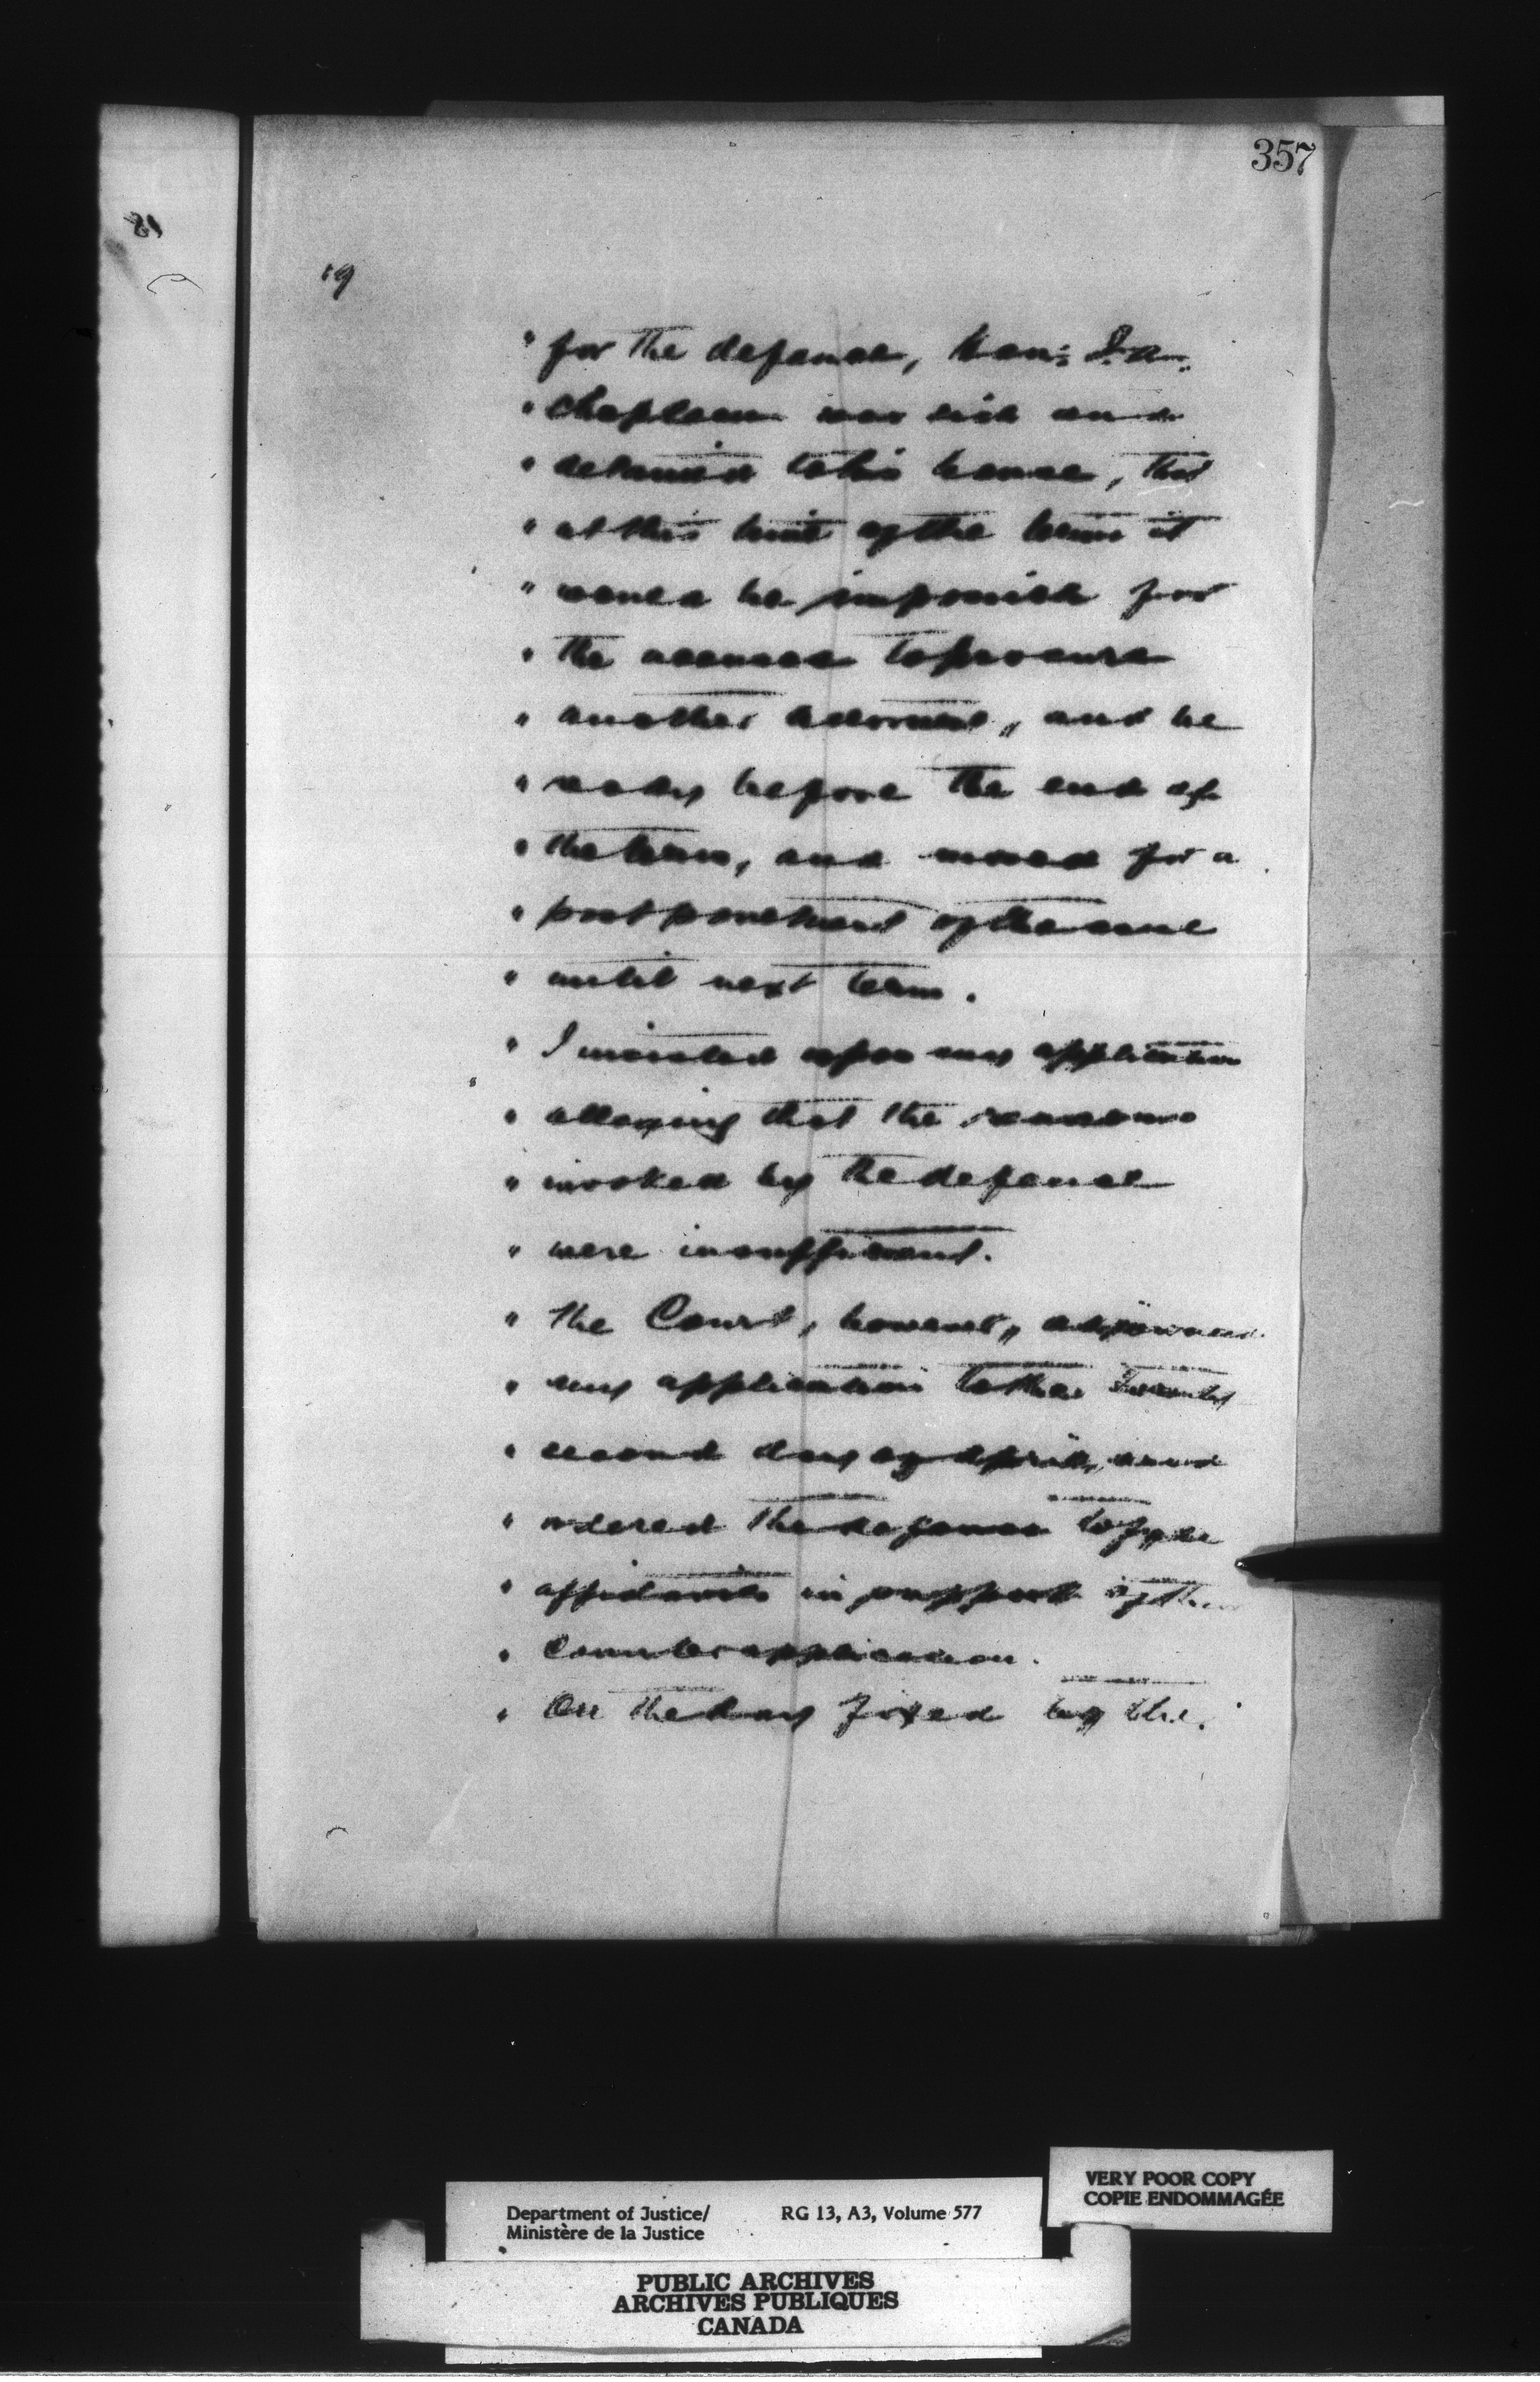 357
19
" for the defence, Hon: J. A.
" Chapleau was sick and
" detained to his house, that
" at this time of the term it
" would be impossible for
" the accused to procure
" another advocate, and be
" ready before the end of
" the term, and moved for a
" postponement of the case
" until next term.
" I insisted upon my application
" alleging that the reasons
" invoked by the defence
" were insufficient.
" The Court, however, adjourned
" my application to the Twenty
" second day of April, and
" ordered the defence to fyle
" affidavits in support of their
" counter application.
" On the day fixed by the
Department of Justice/ RG 13, A3, Volume 577
Ministère de la Justice
VERY POOR COPY
COPIE ENDOMMAGÉE
PUBLIC ARCHIVES
ARCHIVES PUBLIQUES
CANADA